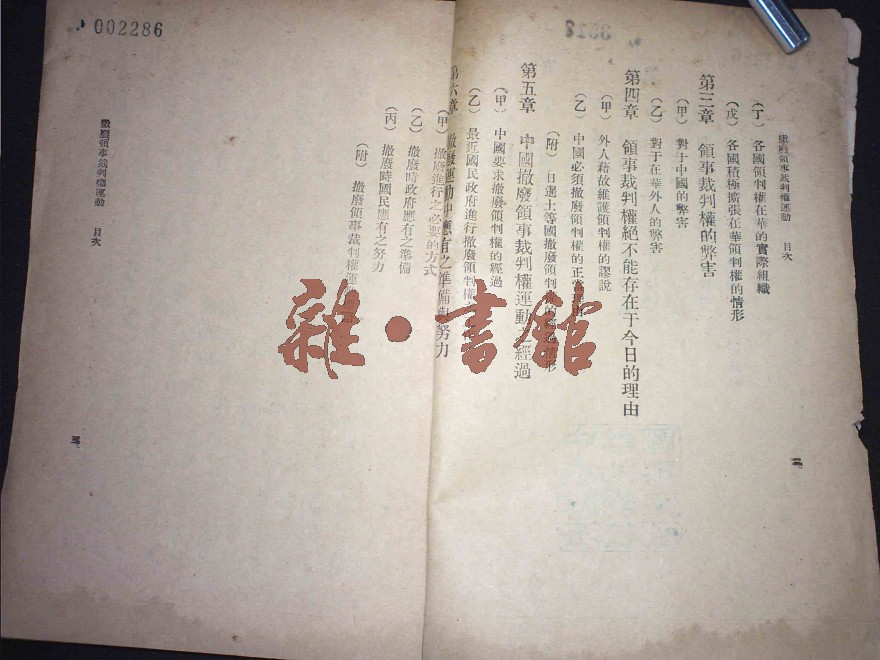 撤廢領事裁判權運動 目次
(丁) 各國領判權在華的實際組織
(戊) 各國積極擴張在華領判權的情形
第三章 領事裁判權的弊害
(甲) 對于中國的弊害
(乙) 對于在華外人的弊害
第四章 領事裁判權絕不能存在于今日的理由
(甲) 外人藉故維護領判權的謬說
(乙) 中國必須撤廢領判權的正當理由
(附) 日暹土等國撤廢領判權的 情形
第五章 中國撤廢領事裁判權運動之經過
(甲) 中國要求撤廢領判權的經過
(乙) 最近國民政府進行撤廢領判權
二
第六章 撤廢運動中應有之準備與努力
(甲) 撤廢進行之必要的方式
(乙) 撤廢時政府應有之準備
(丙) 撤廢時國民應有之努力
(附) 撤廢領事裁判權運
撤廢領事裁判權運動 目次
三
002286
3018
雜·書館